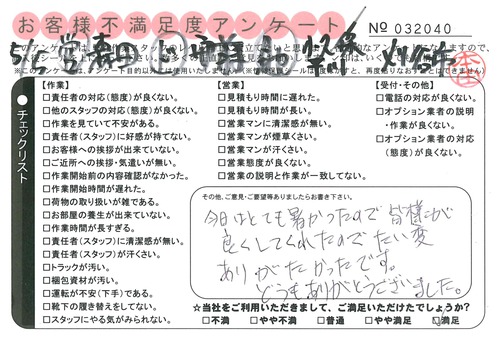 お客様不満足度アンケート
No 032040
チェックリスト
【作業】
□責任者の対応(態度)が良くない。
□他のスタッフの対応(態度)が良くない。
□作業を見ていて不安がある。
□責任者(スタッフ)に好感が持てない。
□お客様への挨拶が出来ていない。
□ご近所への挨拶・気遣いが無い。
□作業開始前の内容確認がなかった。
□作業開始時間が遅れた。
□荷物の取り扱いが雑である。
□お部屋の養生が出来ていない。
□作業時間が長すぎる。
□責任者(スタッフ)に清潔感が無い。
□責任者(スタッフ)が汗くさい。
□トラックが汚い。
□梱包資材が汚い。
□運転が不安(下手)である。
□靴下の履き替えをしてない。
□スタッフにやる気がみられない。
【営業】
□見積もり時間に遅れた。
□見積もり時間が長い。
□営業マンに清潔感が無い。
□営業マンが煙草くさい。
□営業マンが汗くさい。
□営業態度が良くない。
□営業の説明と作業が一致してない。
【受付・その他】
□電話の対応が良くない。
□オプション業者の説明
・作業が良くない。
□オプション業者の対応
(態度)が良くない。
その他、ご意見・ご要望等ありましたらお書き下さい。
今日はとても暑かったので皆様が
良くしてくれたのでたい変
ありがたかったです。
どうもありがとうございました。
☆当社をご利用いただきまして、ご満足いただけたでしょうか?
□不満 □やや不満 □普通 □やや満足 □満足